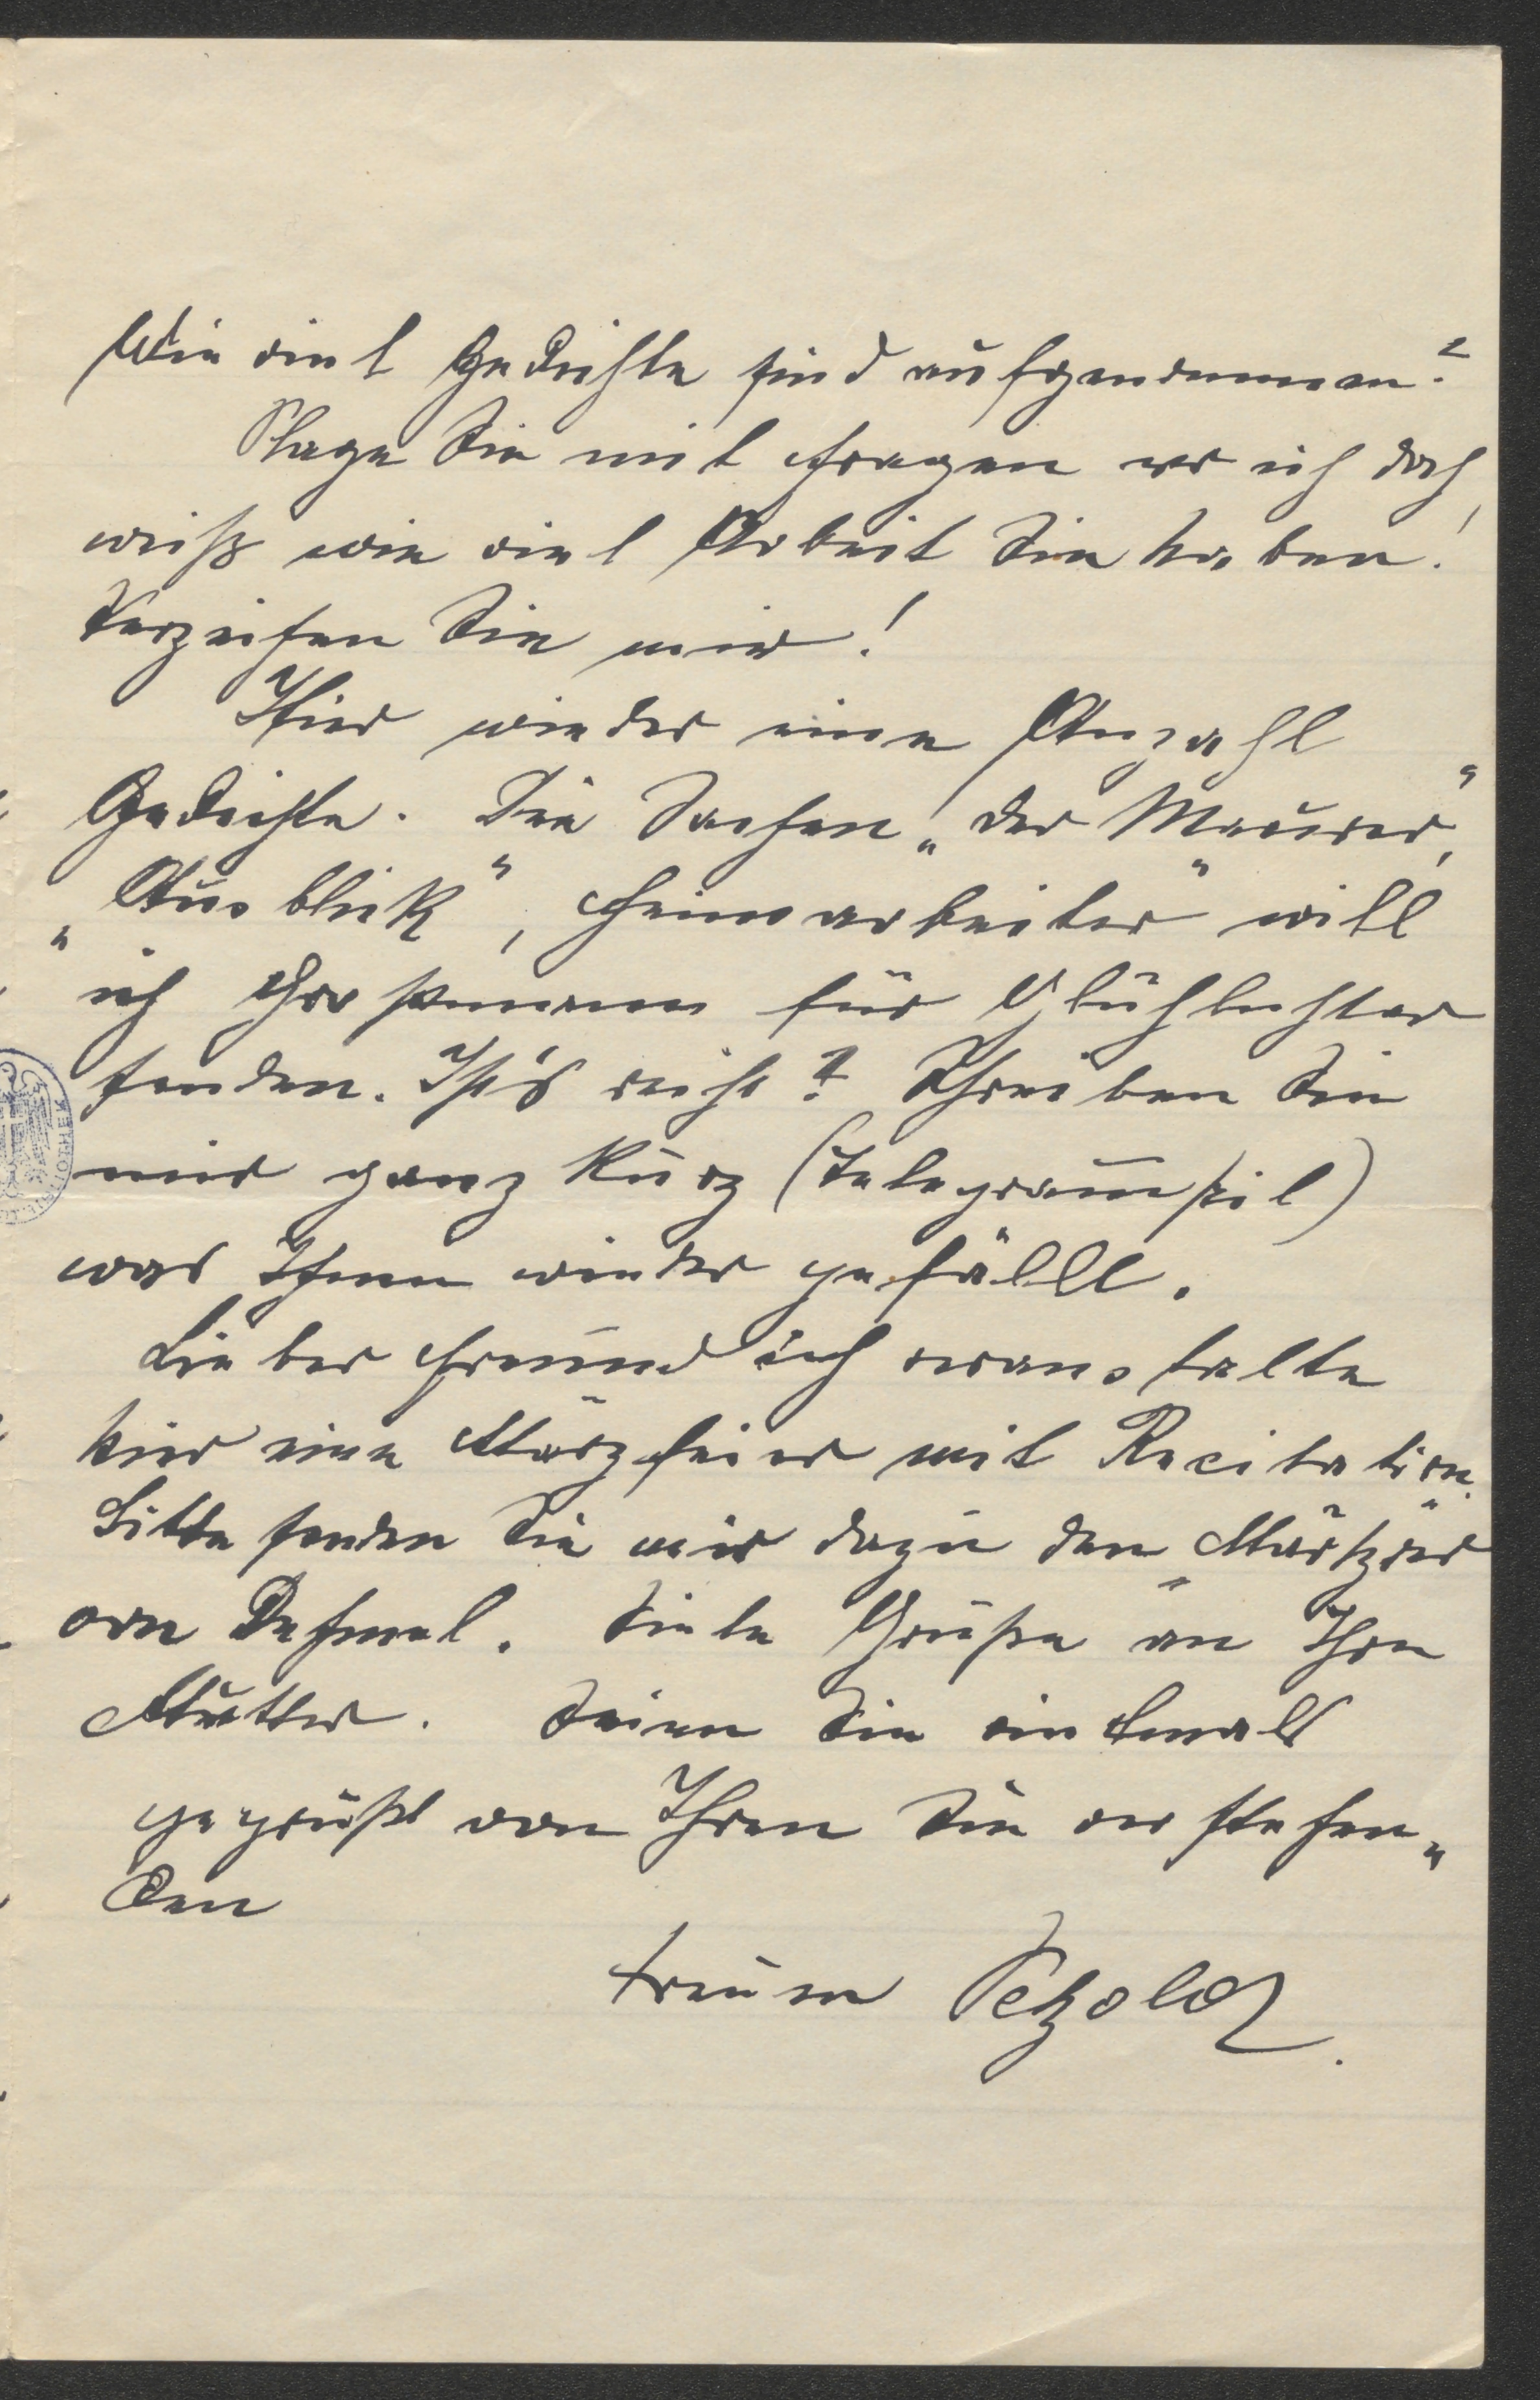 Wie viel Gedichte sind aufgenommen?
Plage Sie mit Fragen wo ich doch
weiß wie viel Arbeit Sie haben!
Verzeihen Sie mir!
Hier wieder eine Anzahl
Gedichte. Die Sachen „der Maurer“,
„Ausblick“, Heimarbeiter“ will
ich Großmann für Glühlichter
senden. Ist's recht? Schreiben Sie
mir ganz kurz (Telegram̅stil)
was Ihnen wieder gefällt.
Lieber Freund ich veranstalte
hier eine Märzfeier mit Recitation.
Bitte senden Sie mir dazu den „Märtyrer“
von Dehmel. Viele Grüße an Ihre
Mutter. Seien Sie vielmals
gegrüßt von Ihren Sie verstehen„
den
treuen Petzold.